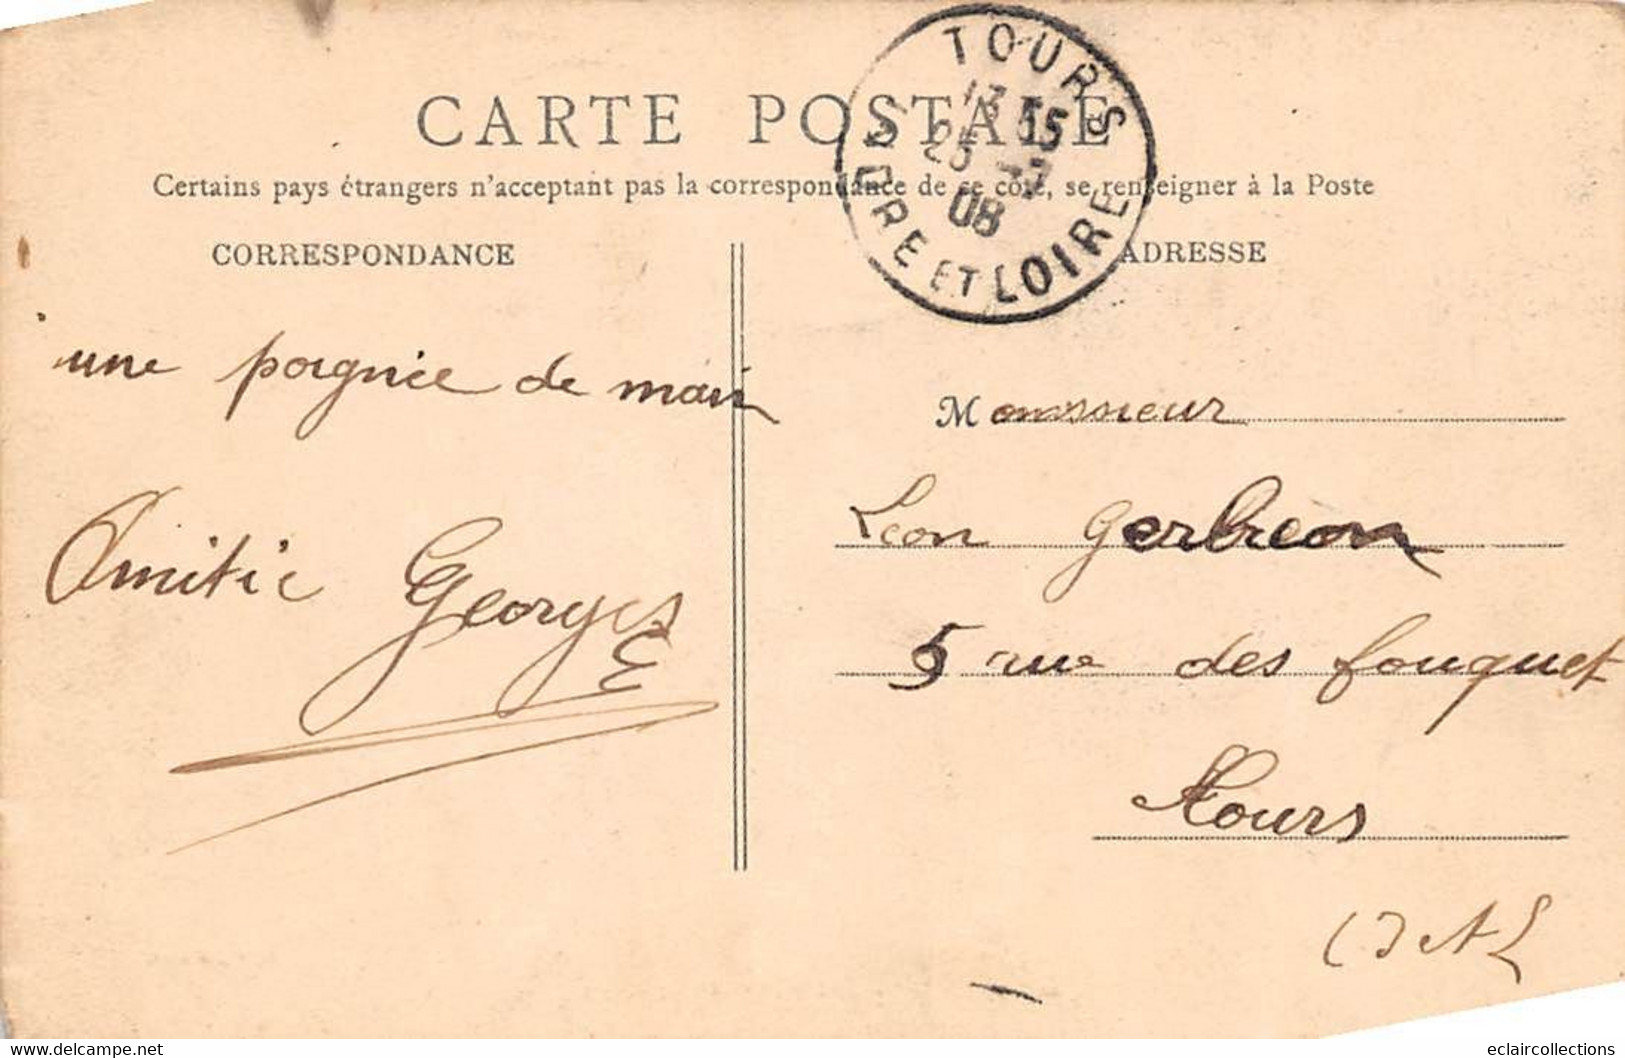 CARTE POSTALE
Certains pays étrangers n'acceptent pas la correspondance de ce côté, se renseigner à la Poste
TOURS
13 55
25
08
INDRE ET LOIRE
CORRESPONDANCE
ADRESSE
une poignée de main
Amitié Georges
Monsieur
Léon Gerbreon
5 rue des fouquet
Tours
(I et L
www.delcampe.net
eclaircollections